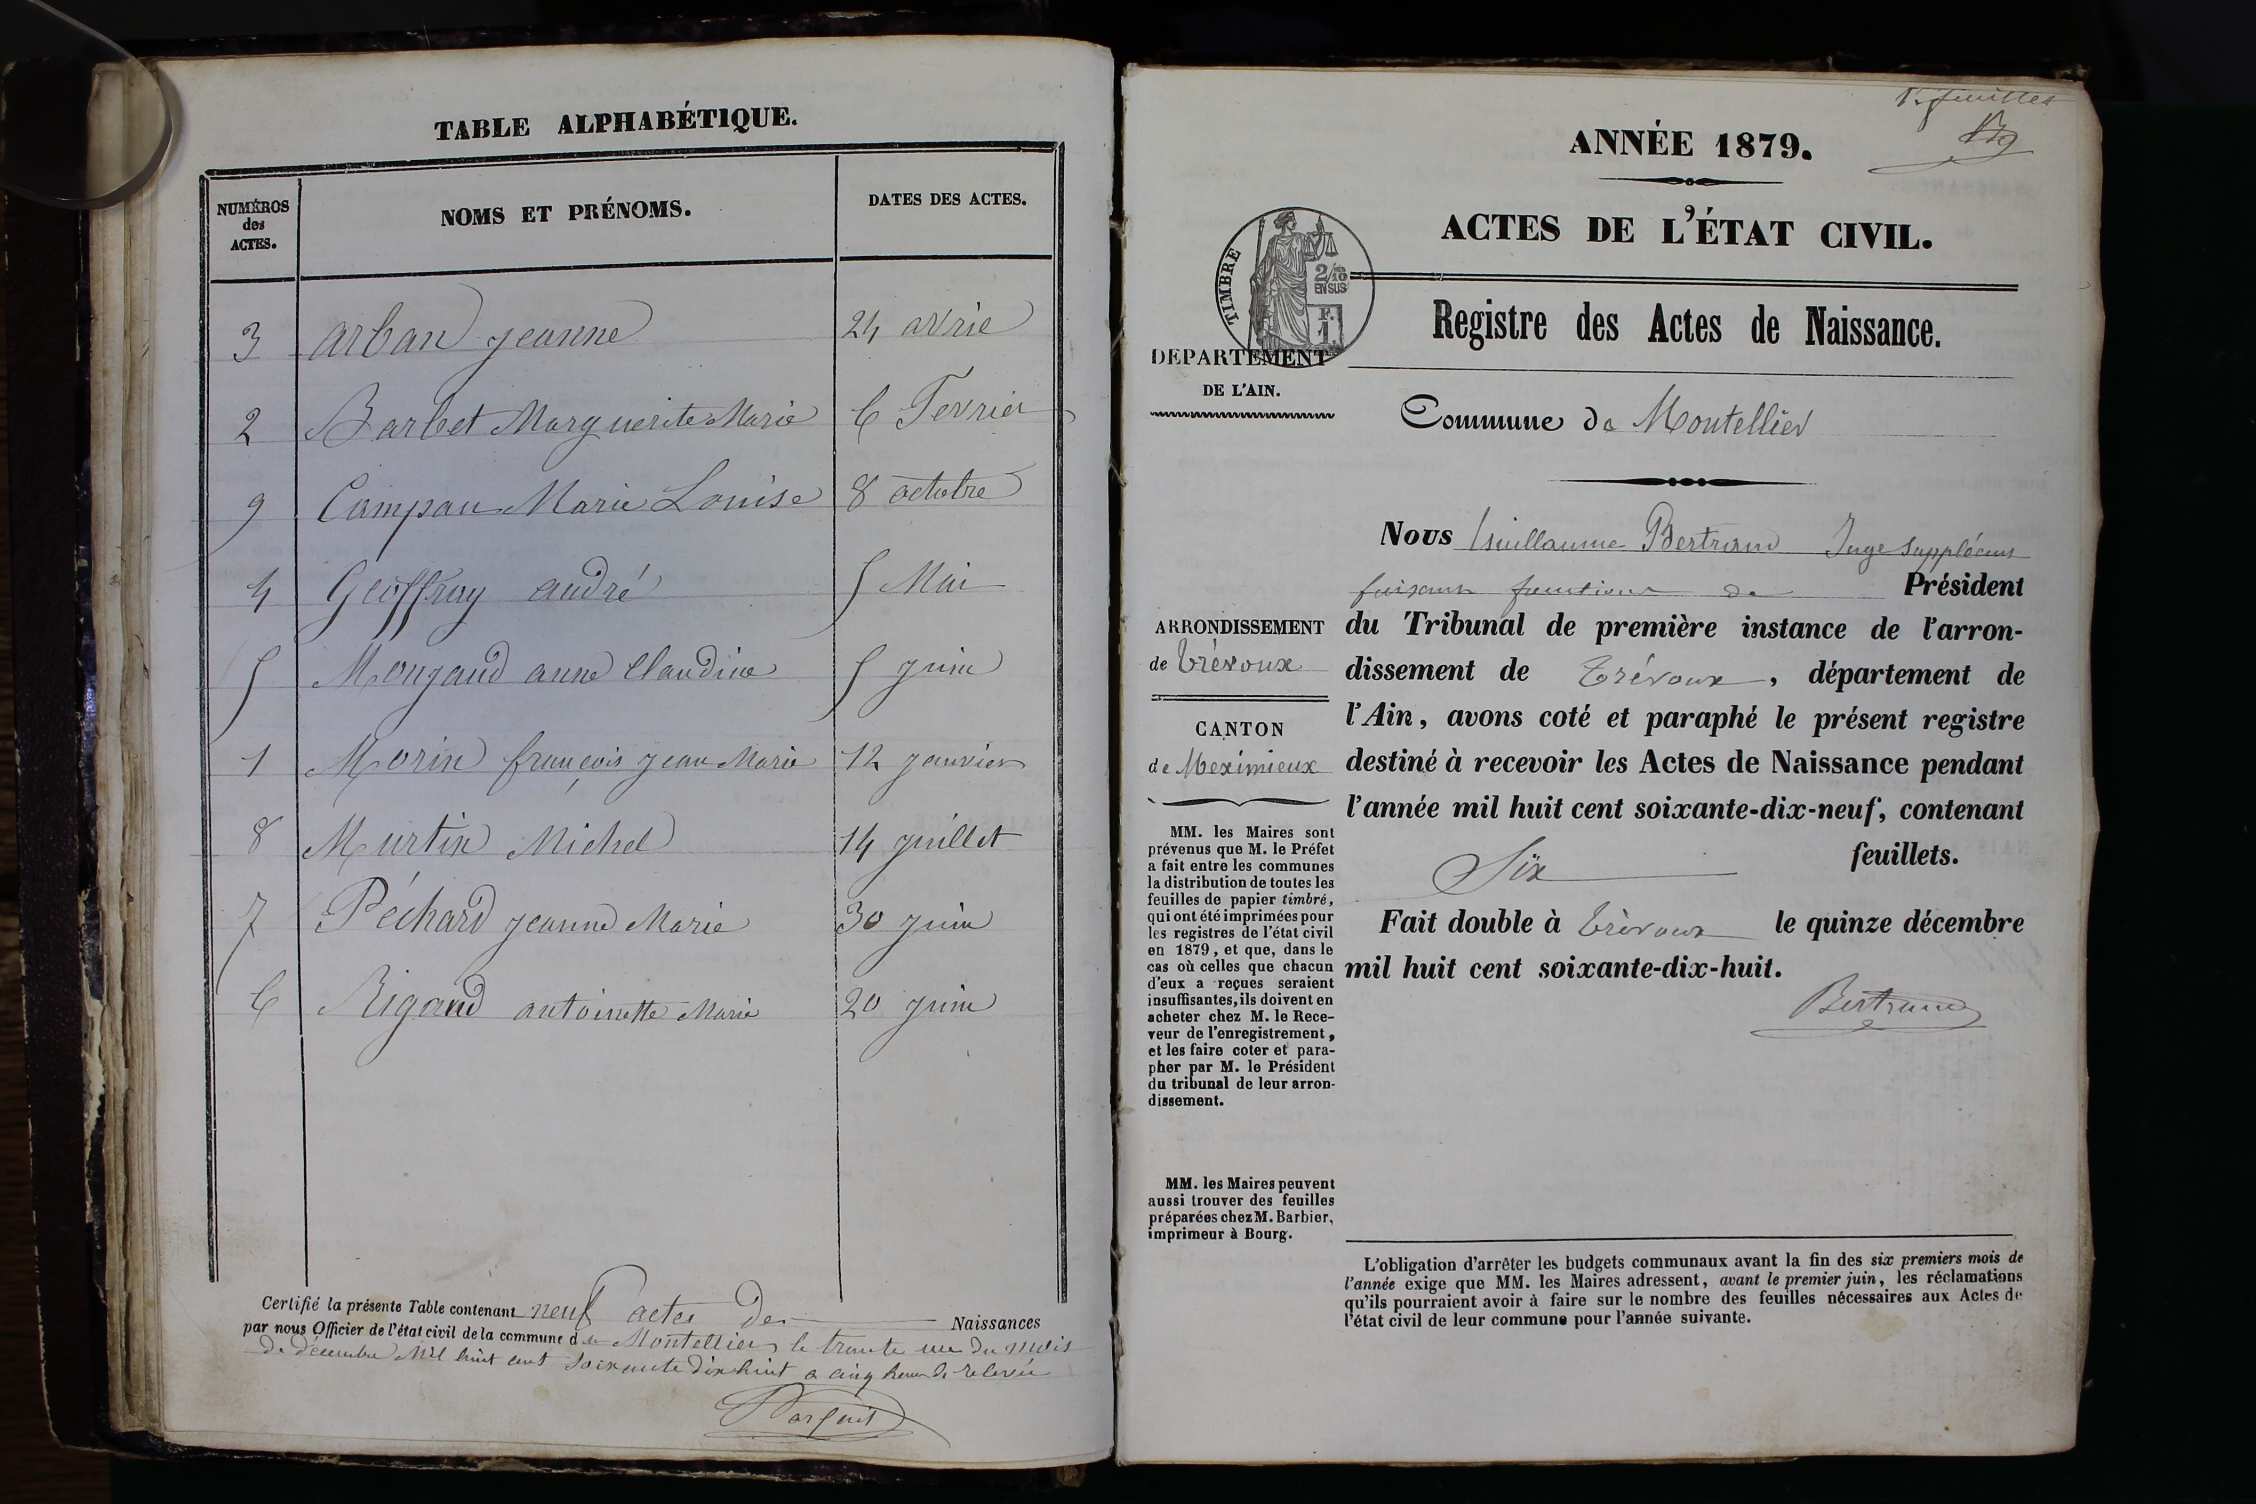 TABLE ALPHABÉTIQUE.
NUMÉROS
des
ACTES.
NOMS ET PRÉNOMS.
DATES DES ACTES.
3 arban jeanne 24 avril
2 Barbet Marguerite Marie 6 Fevrier
9 Campan Marie Louise 8 octobre
4 Geoffray andré 5 Mai
5 Mongaud anne Claudine 5 juin
1 Morin françois jean Marie 12 janvier
8 Murtin Michel 14 juillet
7 Péchard jeanne Marie 30 juin
6 Rigaud antoinette Marie 20 juin
Certifié la présente Table contenant neuf actes de Naissances
par nous Officier de l'état civil de la commune du Montellier le trente un du mois
de décembre Mil huit cent soixante dix huit a cinq heures de relevée
1r feuillet
ANNÉE 1879.
ACTES DE L'ÉTAT CIVIL.
TIMBRE
2/10
EN SUS
F.
1.
Registre des Actes de Naissance.
DEPARTEMENT
DE L'AIN.
Commune de Montellier
Nous Guillaume Bertrand Juge Suppléant
faisant fonctions de Président
du Tribunal de première instance de l'arron-
dissement de Trévoux, département de
l'Ain, avons coté et paraphé le présent registre
destiné à recevoir les Actes de Naissance pendant
l'année mil huit cent soixante-dix-neuf, contenant
Six feuillets.
Fait double à Trévoux le quinze décembre
mil huit cent soixante-dix-huit.
Bertrand
ARRONDISSEMENT
de Trévoux
CANTON
de Meximieux
MM. les Maires sont
prévenus que M. le Préfet
a fait entre les communes
la distribution de toutes les
feuilles de papier timbré,
qui ont été imprimées pour
les registres de l'état civil
en 1879, et que, dans le
cas où celles que chacun
d'eux a reçues seraient
insuffisantes, ils doivent en
acheter chez M. le Rece-
veur de l'enregistrement,
et les faire coter et para-
pher par M. le Président
du tribunal de leur arron-
dissement.
MM. les Maires peuvent
aussi trouver des feuilles
préparées chez M. Barbier,
imprimeur à Bourg.
L'obligation d'arrêter les budgets communaux avant la fin des six premiers mois de
l'année exige que MM. les Maires adressent, avant le premier juin, les réclamations
qu'ils pourraient avoir à faire sur le nombre des feuilles nécessaires aux Actes de
l'état civil de leur commune pour l'année suivante.